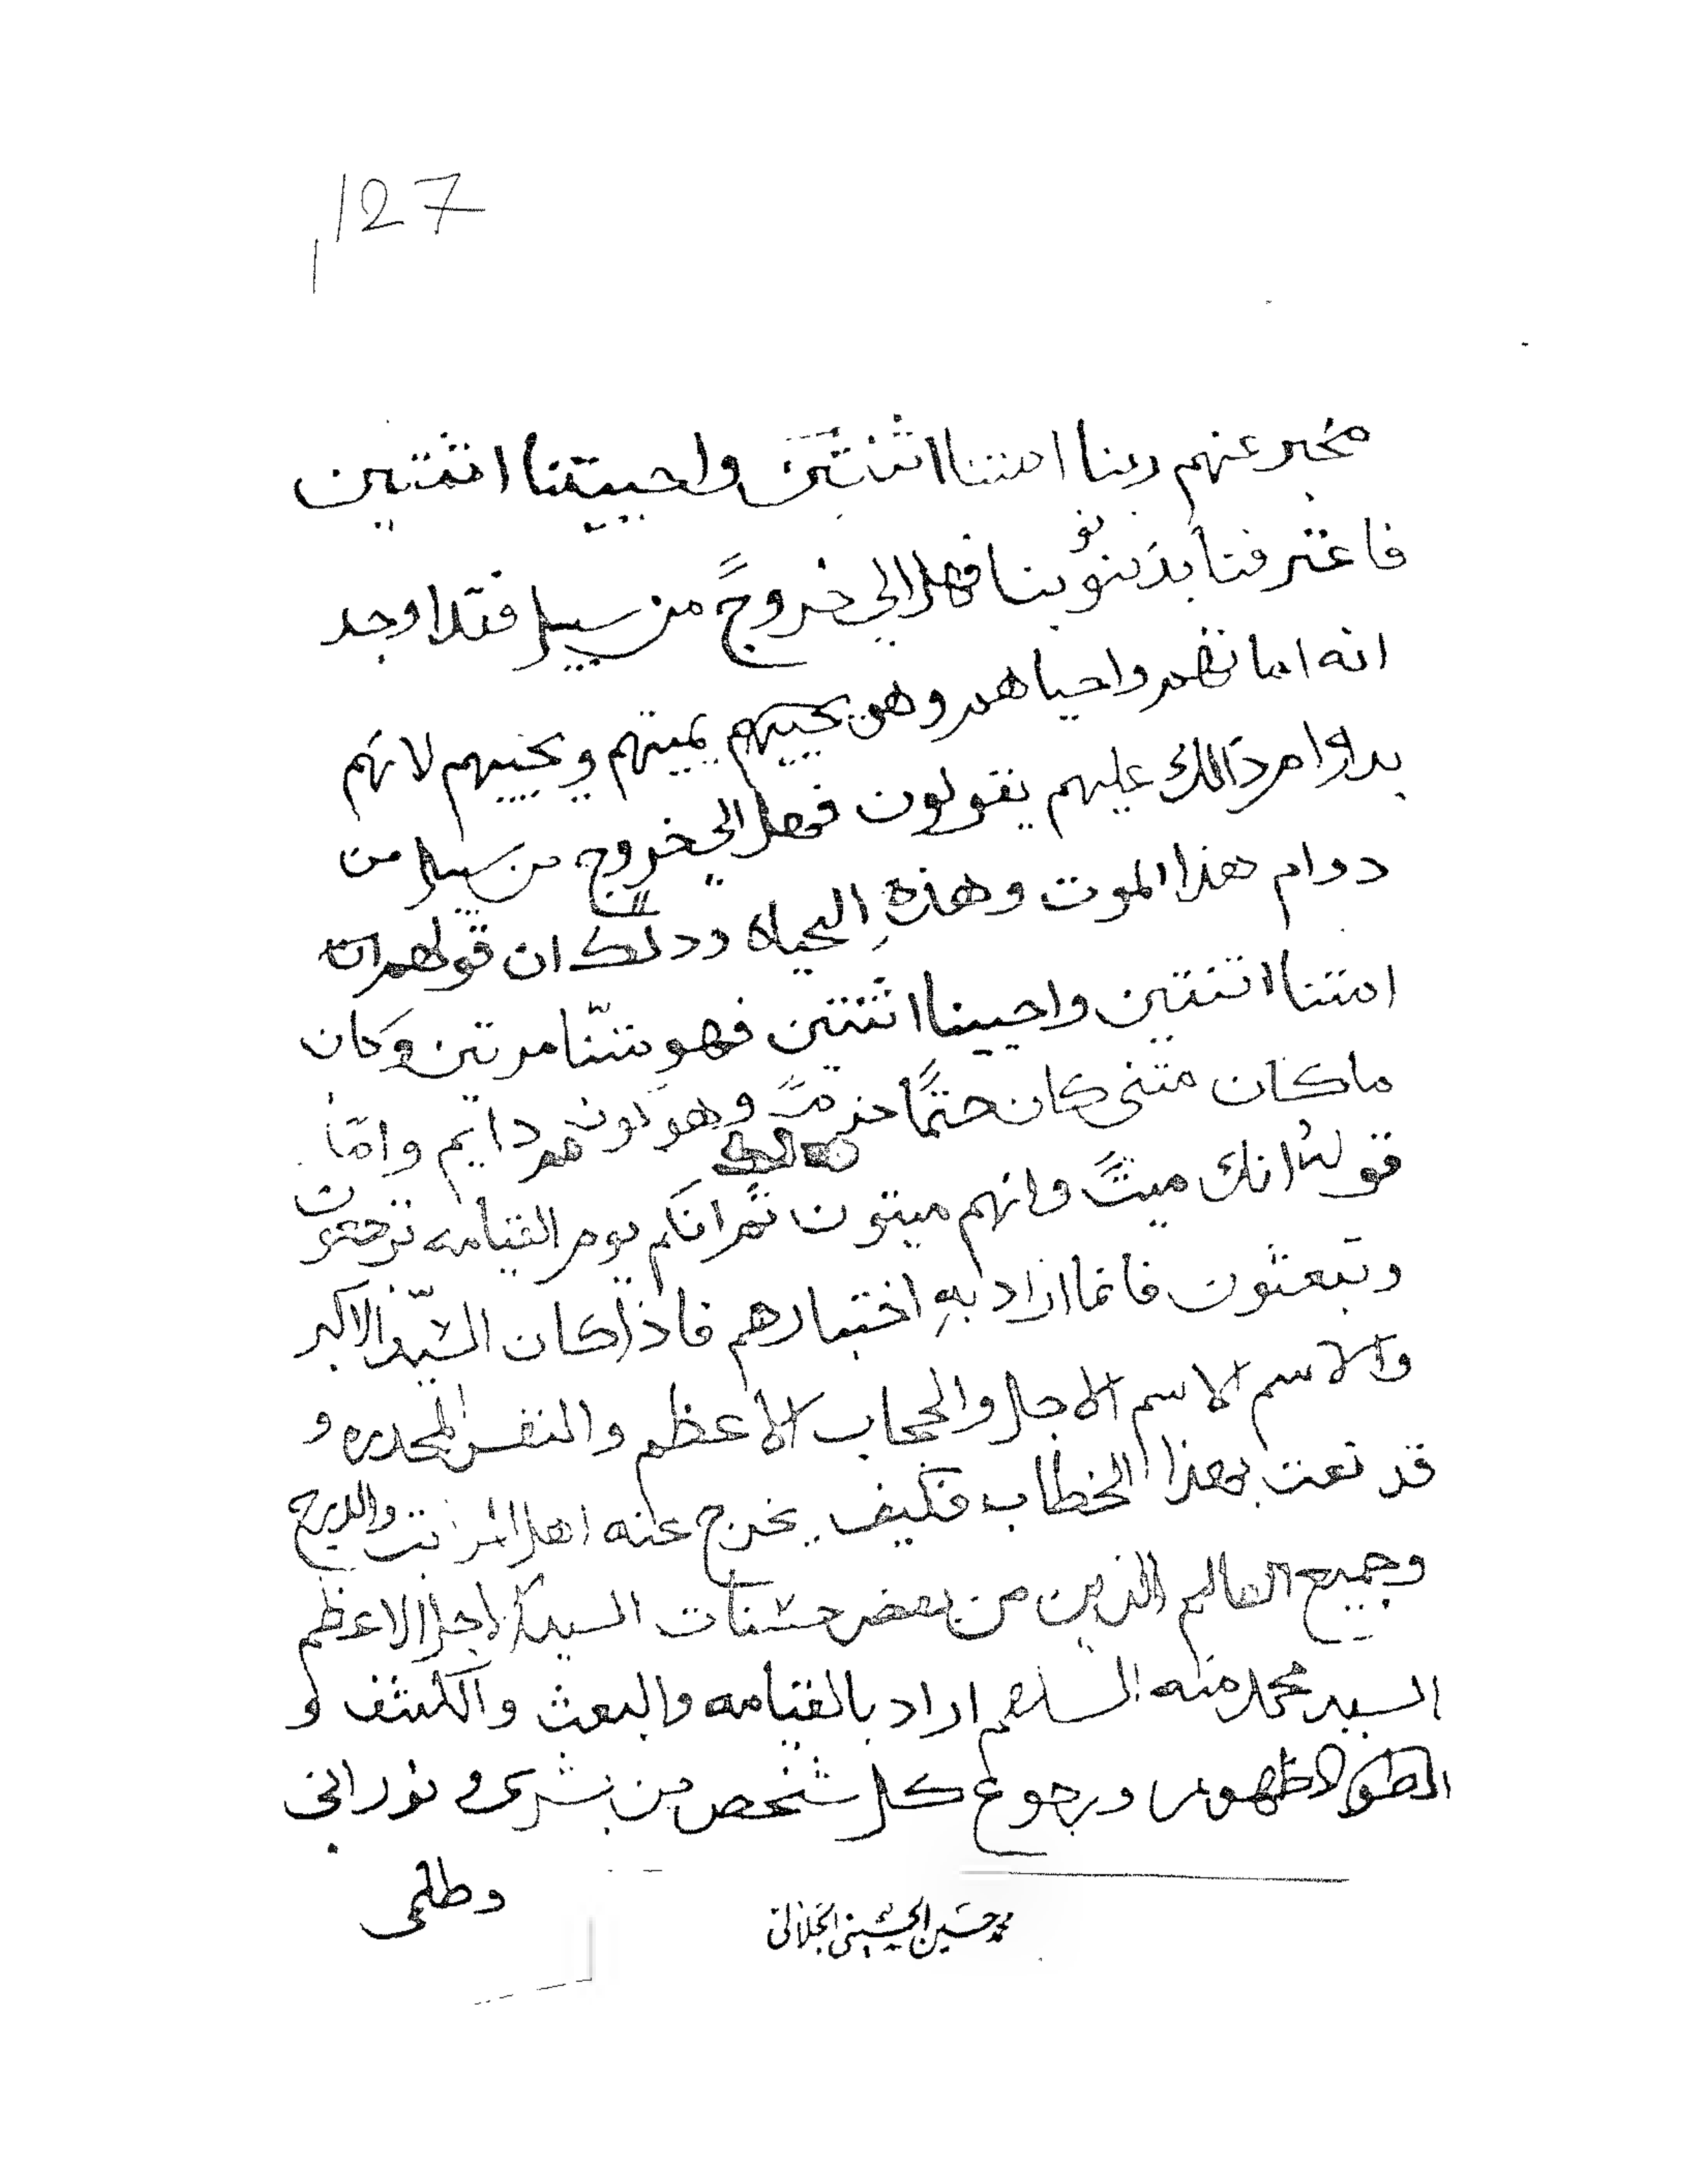 127
مخبر عنهم ربنا امتنا اثنتين واحييتنا اثنتين
فاعترفنا بذنوبنا فهل الى خروجٍ من سبيل فقد اوجد
انه اماتهم واحياهم وهو يحييهم يميتهم ويحييهم لانهم
بدوام ذالك عليهم يقولون فهل الى خروج من سبيل من
دوام هذا الموت وهذهِ الحياه وذلك ان قولهم
امتنا اثنتين واحييتنا اثنتين فهو مرتين وكان
ما كان مثنى كان حتمًا وهو دايم وامّا
قوله انك ميتً وانهم ميتون ثم انكم يوم القيامه
وتبعثون فانما اراد بهِ اختبارهم فاذا كان السيّد الاكبر
والاسم الاسم الاجل والحجاب الاعظم والنفس المحذره و
قد نعت بهذا الخطاب فكيف يخرج عنه اهل المراتب والدرج
وجميع العالم الذين من بعض حسنات السيد الاجل الاعظم
السيد محمد منه السلام اراد بالقيامه والبعث والكشف و
الظهور ورجوع كل شخص من بشرى و نورانى
وظلمى
محمد حسين الحسيني الجلالي